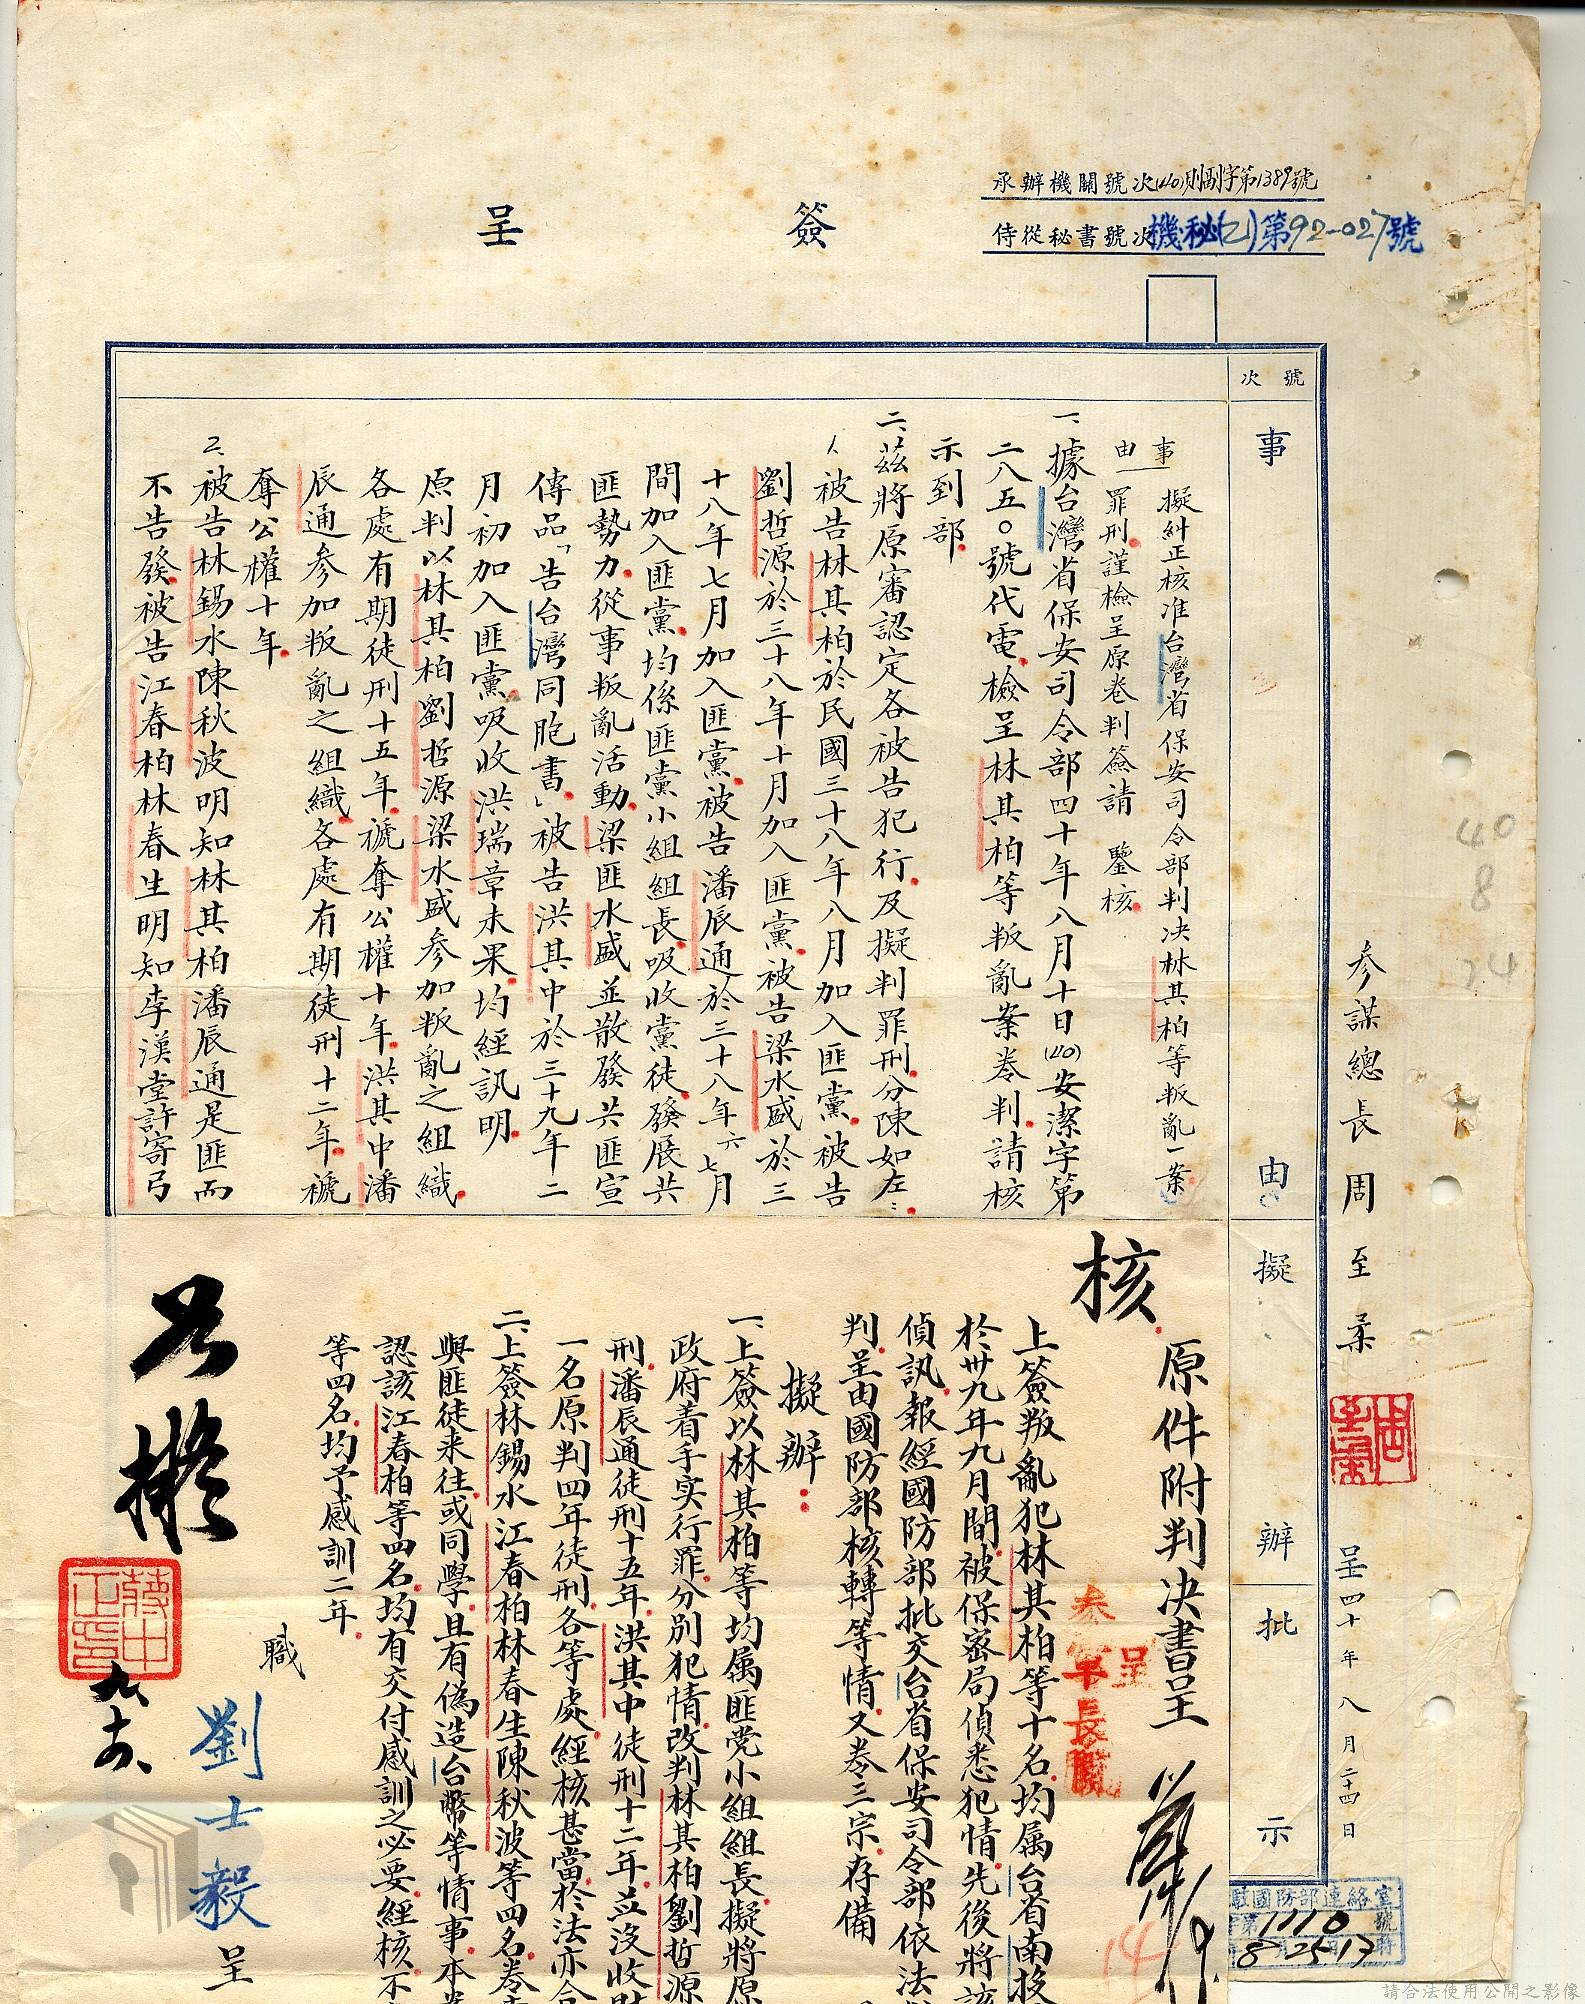 承辦機關號次(40)則副字第1389號
侍從秘書號次機秘(乙)第92-027號
簽呈
號次
事由
擬辦
批示
參謀總長周至柔
呈四十年八月二十四日
40
8
24
事由
擬糾正核准台灣省保安司令部判决林其柏等叛亂一案
罪刑謹檢呈原卷判簽請 鑒核
一、據台灣省保安司令部四十年八月十日(40)安潔字第
二八五〇號代電檢呈林其柏等叛亂案卷判請核
示到部
二、茲將原審認定各被告犯行及擬判罪刑分陳如左：
1、被告林其柏於民國三十八年八月加入匪黨被告
劉哲源於三十八年十月加入匪黨被告梁水盛於三
十八年七月加入匪黨被告潘辰通於三十八年六七月
間加入匪黨均係匪黨小組組長吸收黨徒發展共
匪勢力從事叛亂活動梁匪水盛並散發共匪宣
傳品「告台灣同胞書」被告洪其中於三十九年二
月初加入匪黨吸收洪瑞章未果均經訊明
原判以林其柏劉哲源梁水盛參加叛亂之組織
各處有期徒刑十五年褫奪公權十年洪其中潘
辰通參加叛亂之組織各處有期徒刑十二年褫
奪公權十年
2、被告林錫水陳秋波明知林其柏潘辰通是匪而
不告發被告江春柏林春生明知李漢堂許寄弓
核
原件附判決書呈
上簽叛亂犯林其柏等十名均属台省南投
於卅九年九月間被保密局偵悉犯情先後將該
偵訊報經國防部批交台省保安司令部依法
判呈由國防部核轉等情又卷三宗存備
擬辦：
一、上簽以林其柏等均属匪党小組組長擬將原
政府着手实行罪分別犯情改判林其柏劉哲源
刑潘辰通徒刑十五年洪其中徒刑十二年並沒收財
一名原判四年徒刑各等處經核甚當於法亦合
二、上簽林錫水江春柏林春生陳秋波等四名卷
與匪徒来往或同學且有偽造台幣等情事本
認該江春柏等四名均有交付感訓之必要經核不
等四名均予感訓二年
職劉士毅呈
如擬
蔣中正印
駐國防部連絡室
第1110號
8 25 17 時
14
請合法使用公開之影像